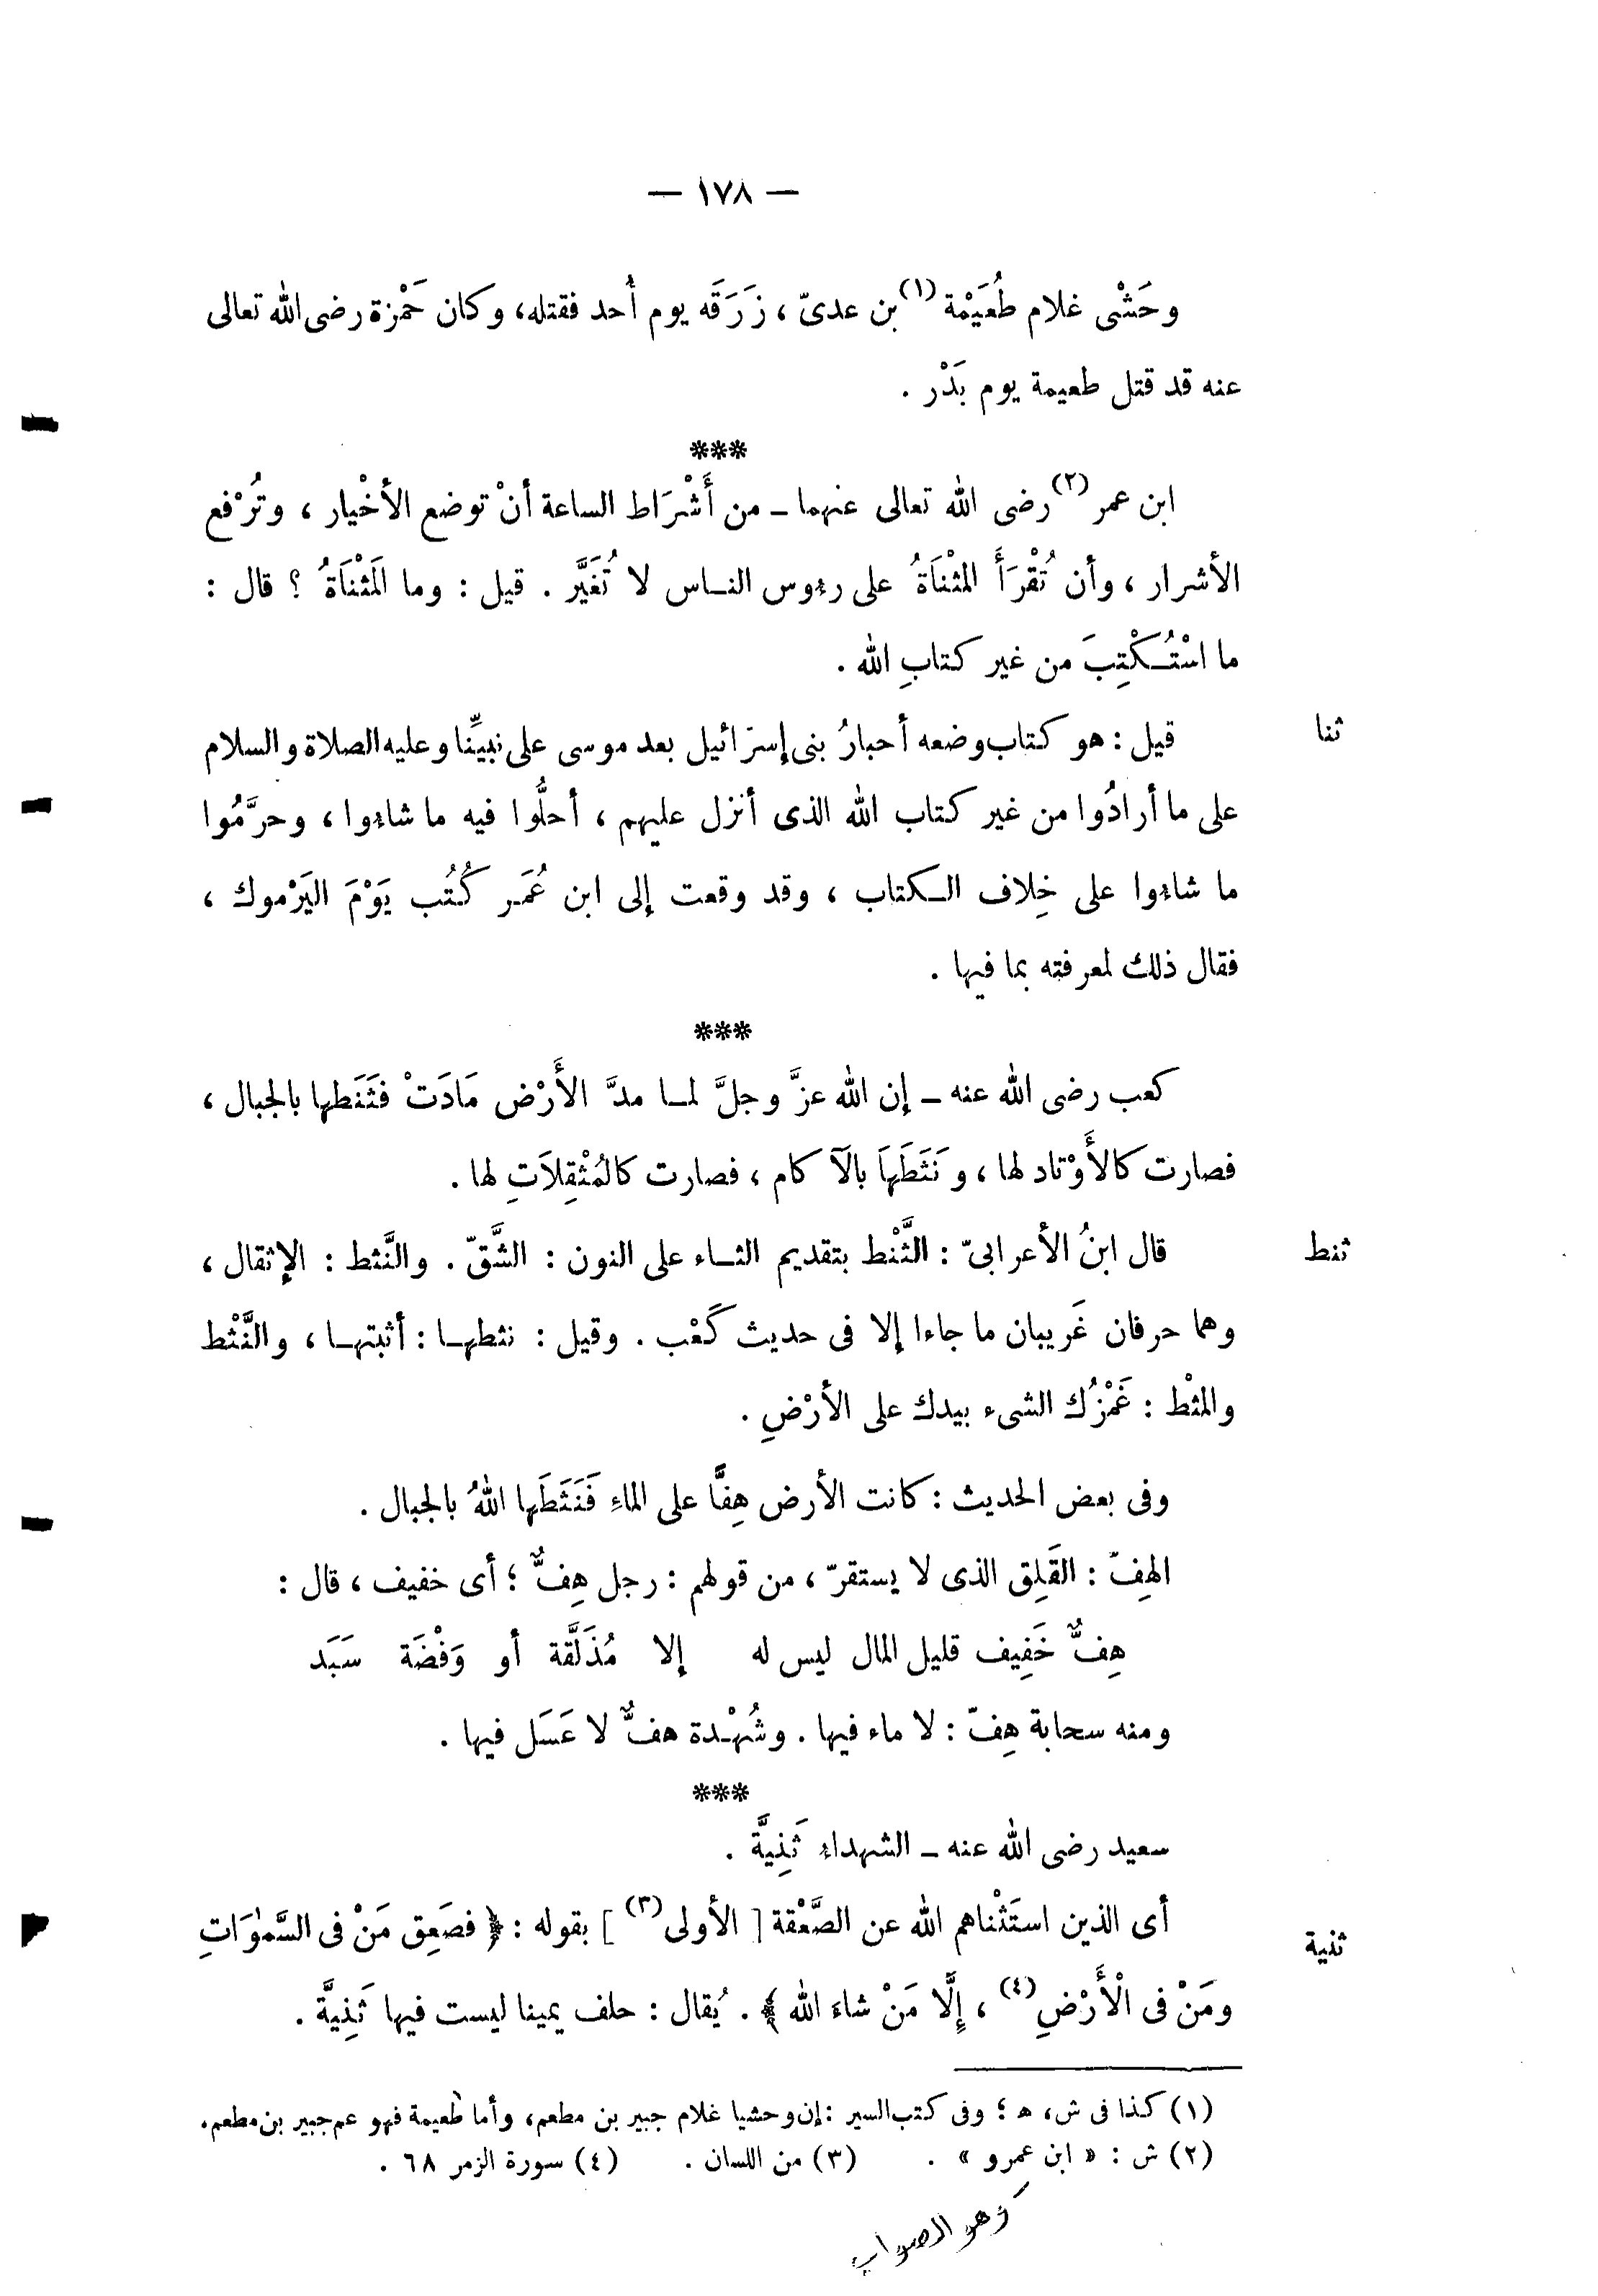 — ١٧٨ —
وحَشْى غلام طُعَيْمة (١) بن عدىّ ، زَرَقَه يوم أُحد فقتله، وكان حَمْزة رضى الله تعالى
عنه قد قتل طعيمة يوم بَدْر .
***
ابن عمر (٢) رضى الله تعالى عنهما ــ من أَشْرَاط الساعة أنْ توضع الأخْيار ، وتُرْفع
الأشرار ، وأن تُقْرَأَ المثْنَاةُ على رءوس النـاس لا تُغَيَّر . قيل : وما المَثْنَاةُ ؟ قال :
ما اسْتُـكْتِبَ من غير كتابِ الله .
ثنا
قيل : هو كتاب وضعه أحبارُ بنى إسرَائيل بعد موسى على نبيِّنا وعليه الصلاة والسلام
على ما أرادُوا من غير كتاب الله الذى أنزل عليهم ، أحلُّوا فيه ما شاءوا ، وحرَّمُوا
ما شاءوا على خِلاف الـكتاب ، وقد وقعت إلى ابن عُمَر كُتُب يَوْمَ اليَرْموك ،
فقال ذلك لمعرفته بما فيها .
***
كعب رضى الله عنه ــ إن الله عزَّ وجلَّ لمـا مدَّ الأَرْض مَادَتْ فثَنَطها بالجبال ،
فصارت كالأَوْتاد لها ، ونَثَطَهَا بالآكام ، فصارت كالمُثْقِلاَتِ لها .
ثنط
قال ابنُ الأعرابىّ : الثَّنْط بتقديم الثـاء على النون : الشَّقّ . والنَّثط : الإثقال ،
وهما حرفان غَريبان ما جاءا إلا فى حديث كَعْب . وقيل : نثطهـا : أثبتهـا ، والنَّثْط
والمثْط : غَمْزُك الشىء بيدك على الأرْضِ .
وفى بعض الحديث : كانت الأرض هِفًّا على الماءِ فَنَثَطَها اللهُ بالجبال .
الهِفّ : القَلِق الذى لا يستقرّ ، من قولهم : رجل هِفٌّ ؛ أى خفيف ، قال :
هِفٌّ خَفِيف قليل المال ليس له إلا مُذَلَّقة أو وَفْضَة سَبَد
ومنه سحابة هِفّ : لا ماء فيها . وشُهْـدة هفٌّ لا عَسَل فيها .
***
سعيد رضى الله عنه ــ الشهداء ثَنِيَّة .
ثنية
أى الذين استَثْناهم الله عن الصَّعْقة [ الأولى (٣) ] بقوله : ﴿ فصَعِق مَنْ فى السَّمٰوَاتِ
ومَنْ فى الْأَرْضِ (٤) ، إِلَّا مَنْ شاءَ الله ﴾ . يُقال : حلف يمينا ليست فيها ثَنِيَّة .
(١) كذا فى ش، ه ؛ وفى كتب السير : إن وحشيا غلام جبير بن مطعم، وأما طعيمة فهو عم جبير بن مطعم.
(٢) ش : « ابن عمرو » . (٣) من اللسان . (٤) سورة الزمر ٦٨ .
وهو الصواب